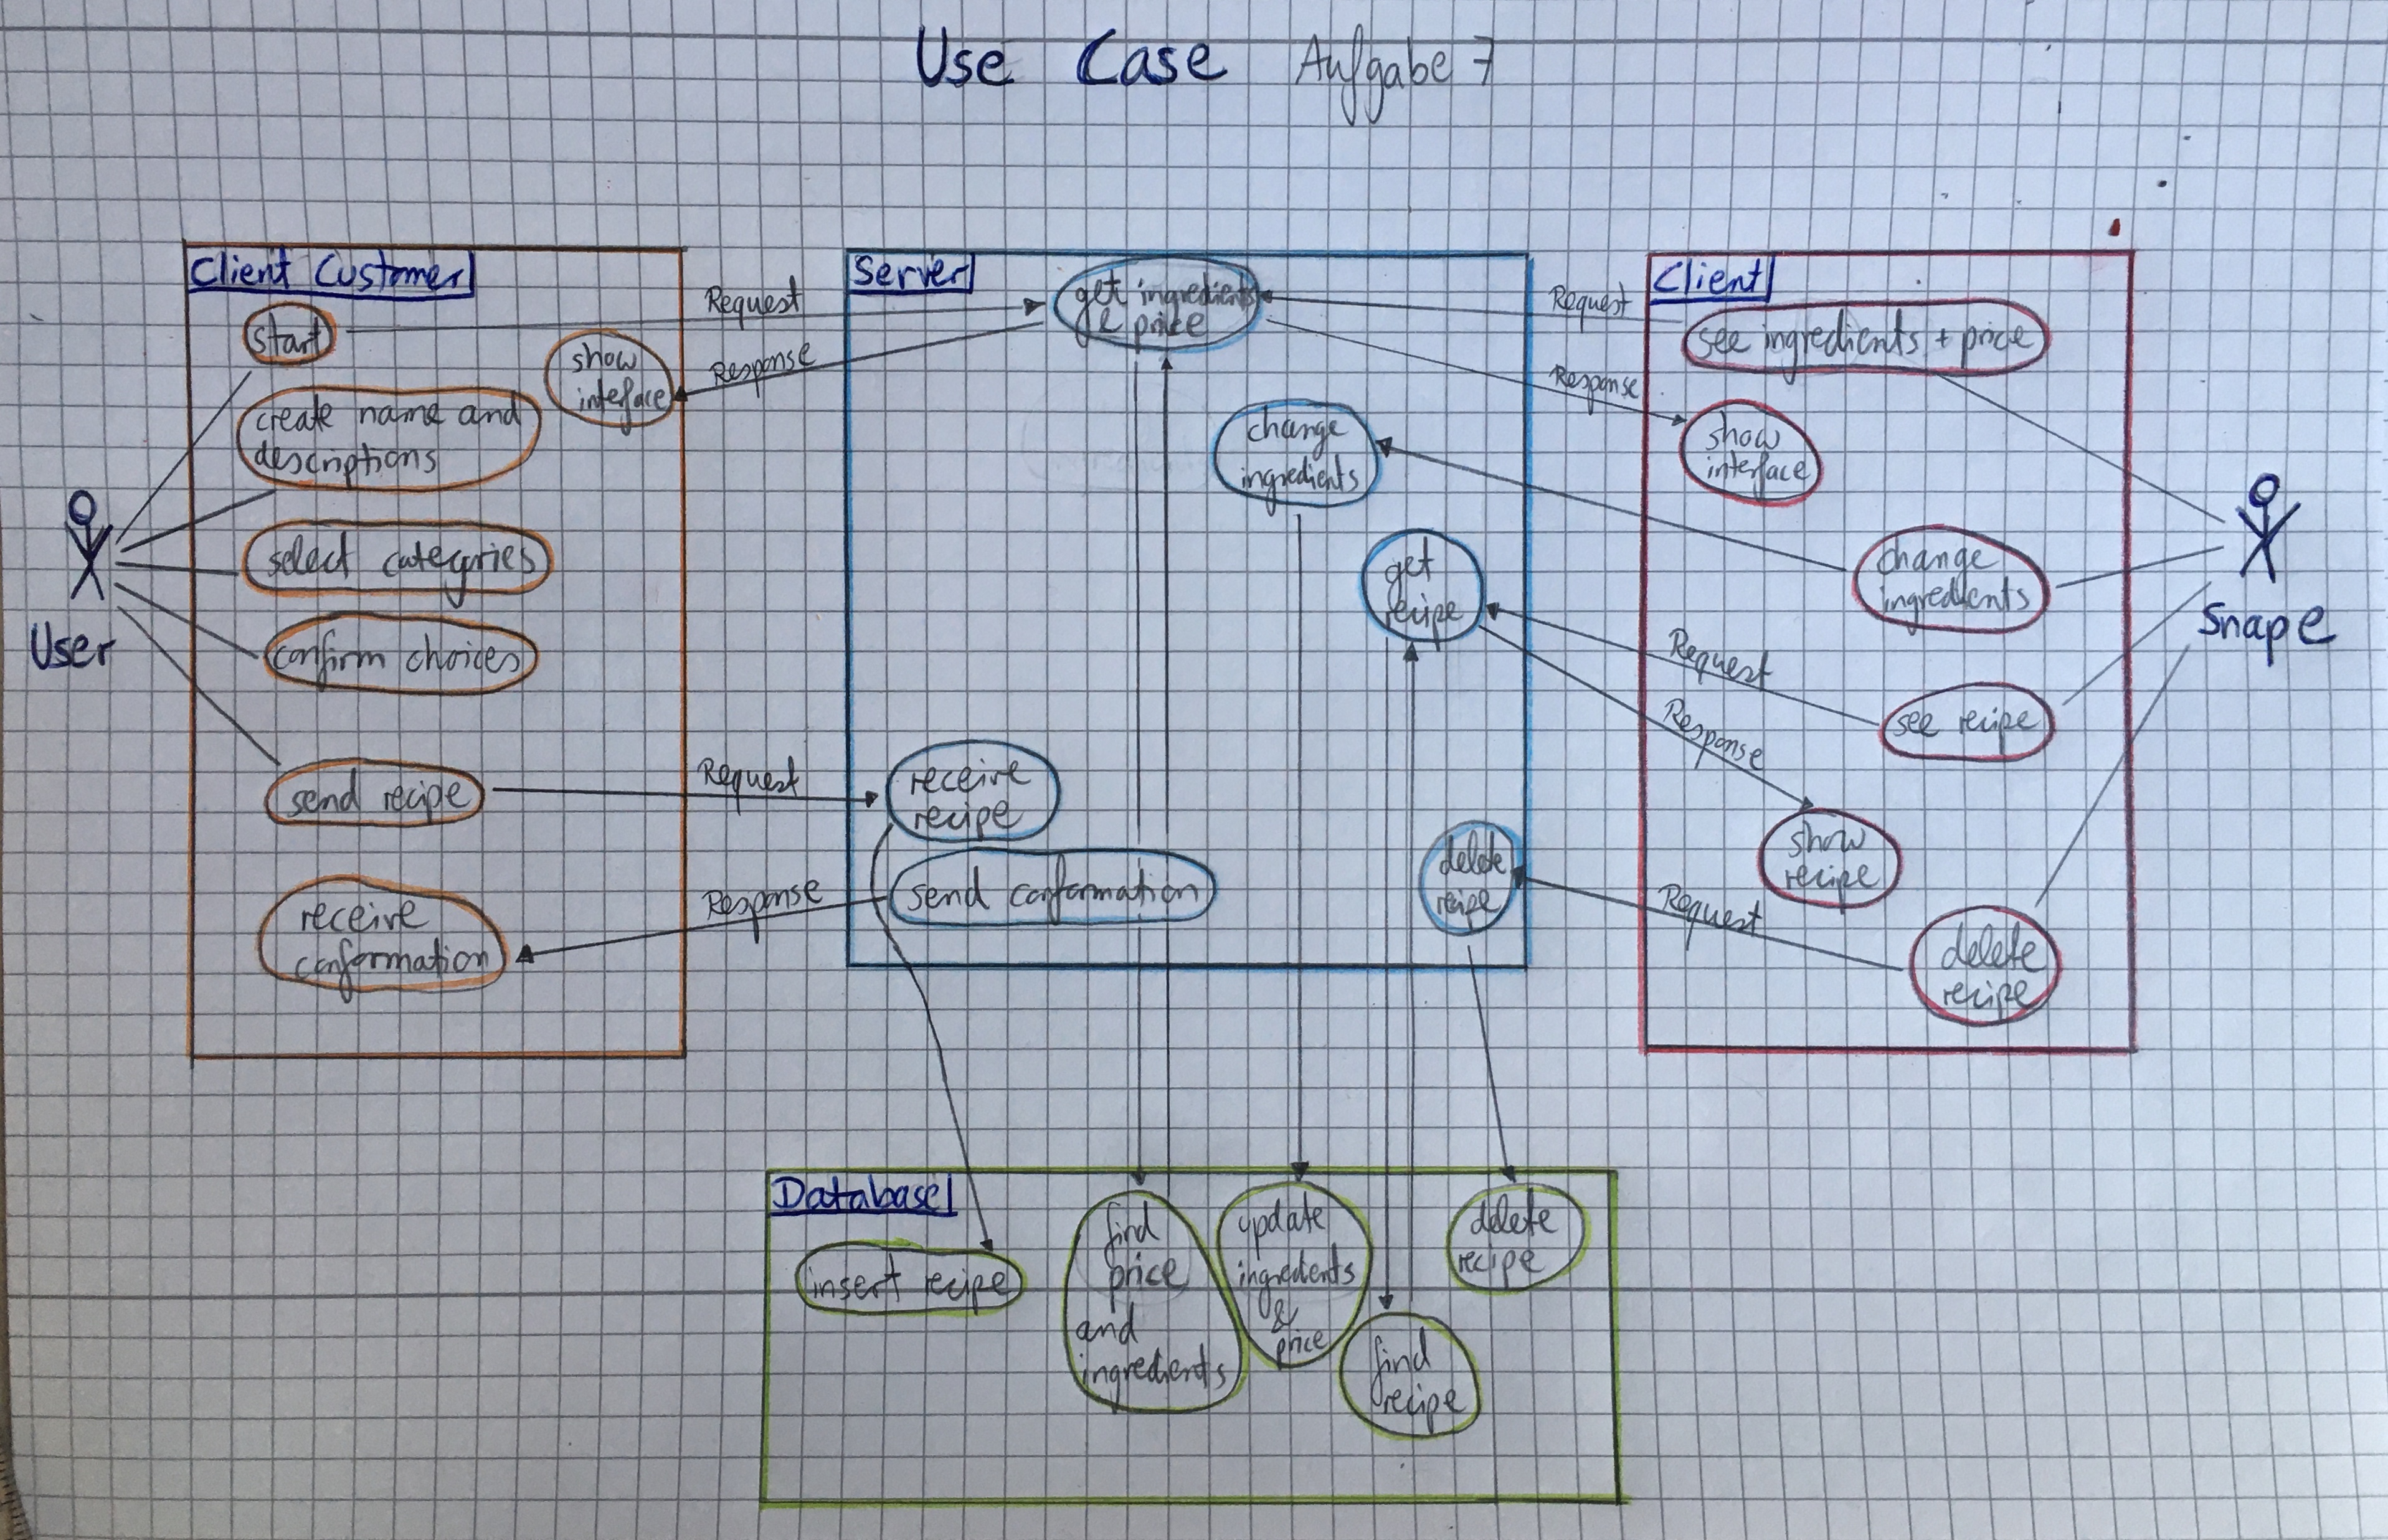 Use Case Aufgabe 7
Client Customer
start
show
interface
create name and
descriptions
select categries
confirm choices
send recipe
receive
conformation
User
Request
Response
Request
Response
Server
get ingredients
& price
change
ingredients
get
recipe
receive
recipe
send conformation
delete
recipe
Request
Response
Request
Response
Request
Client
see ingredients + price
show
interface
change
ingredients
see recipe
show
recipe
delete
recipe
Snape
Database
insert recipe
find
price
and
ingredients
update
ingredients
&
price
find
recipe
delete
recipe